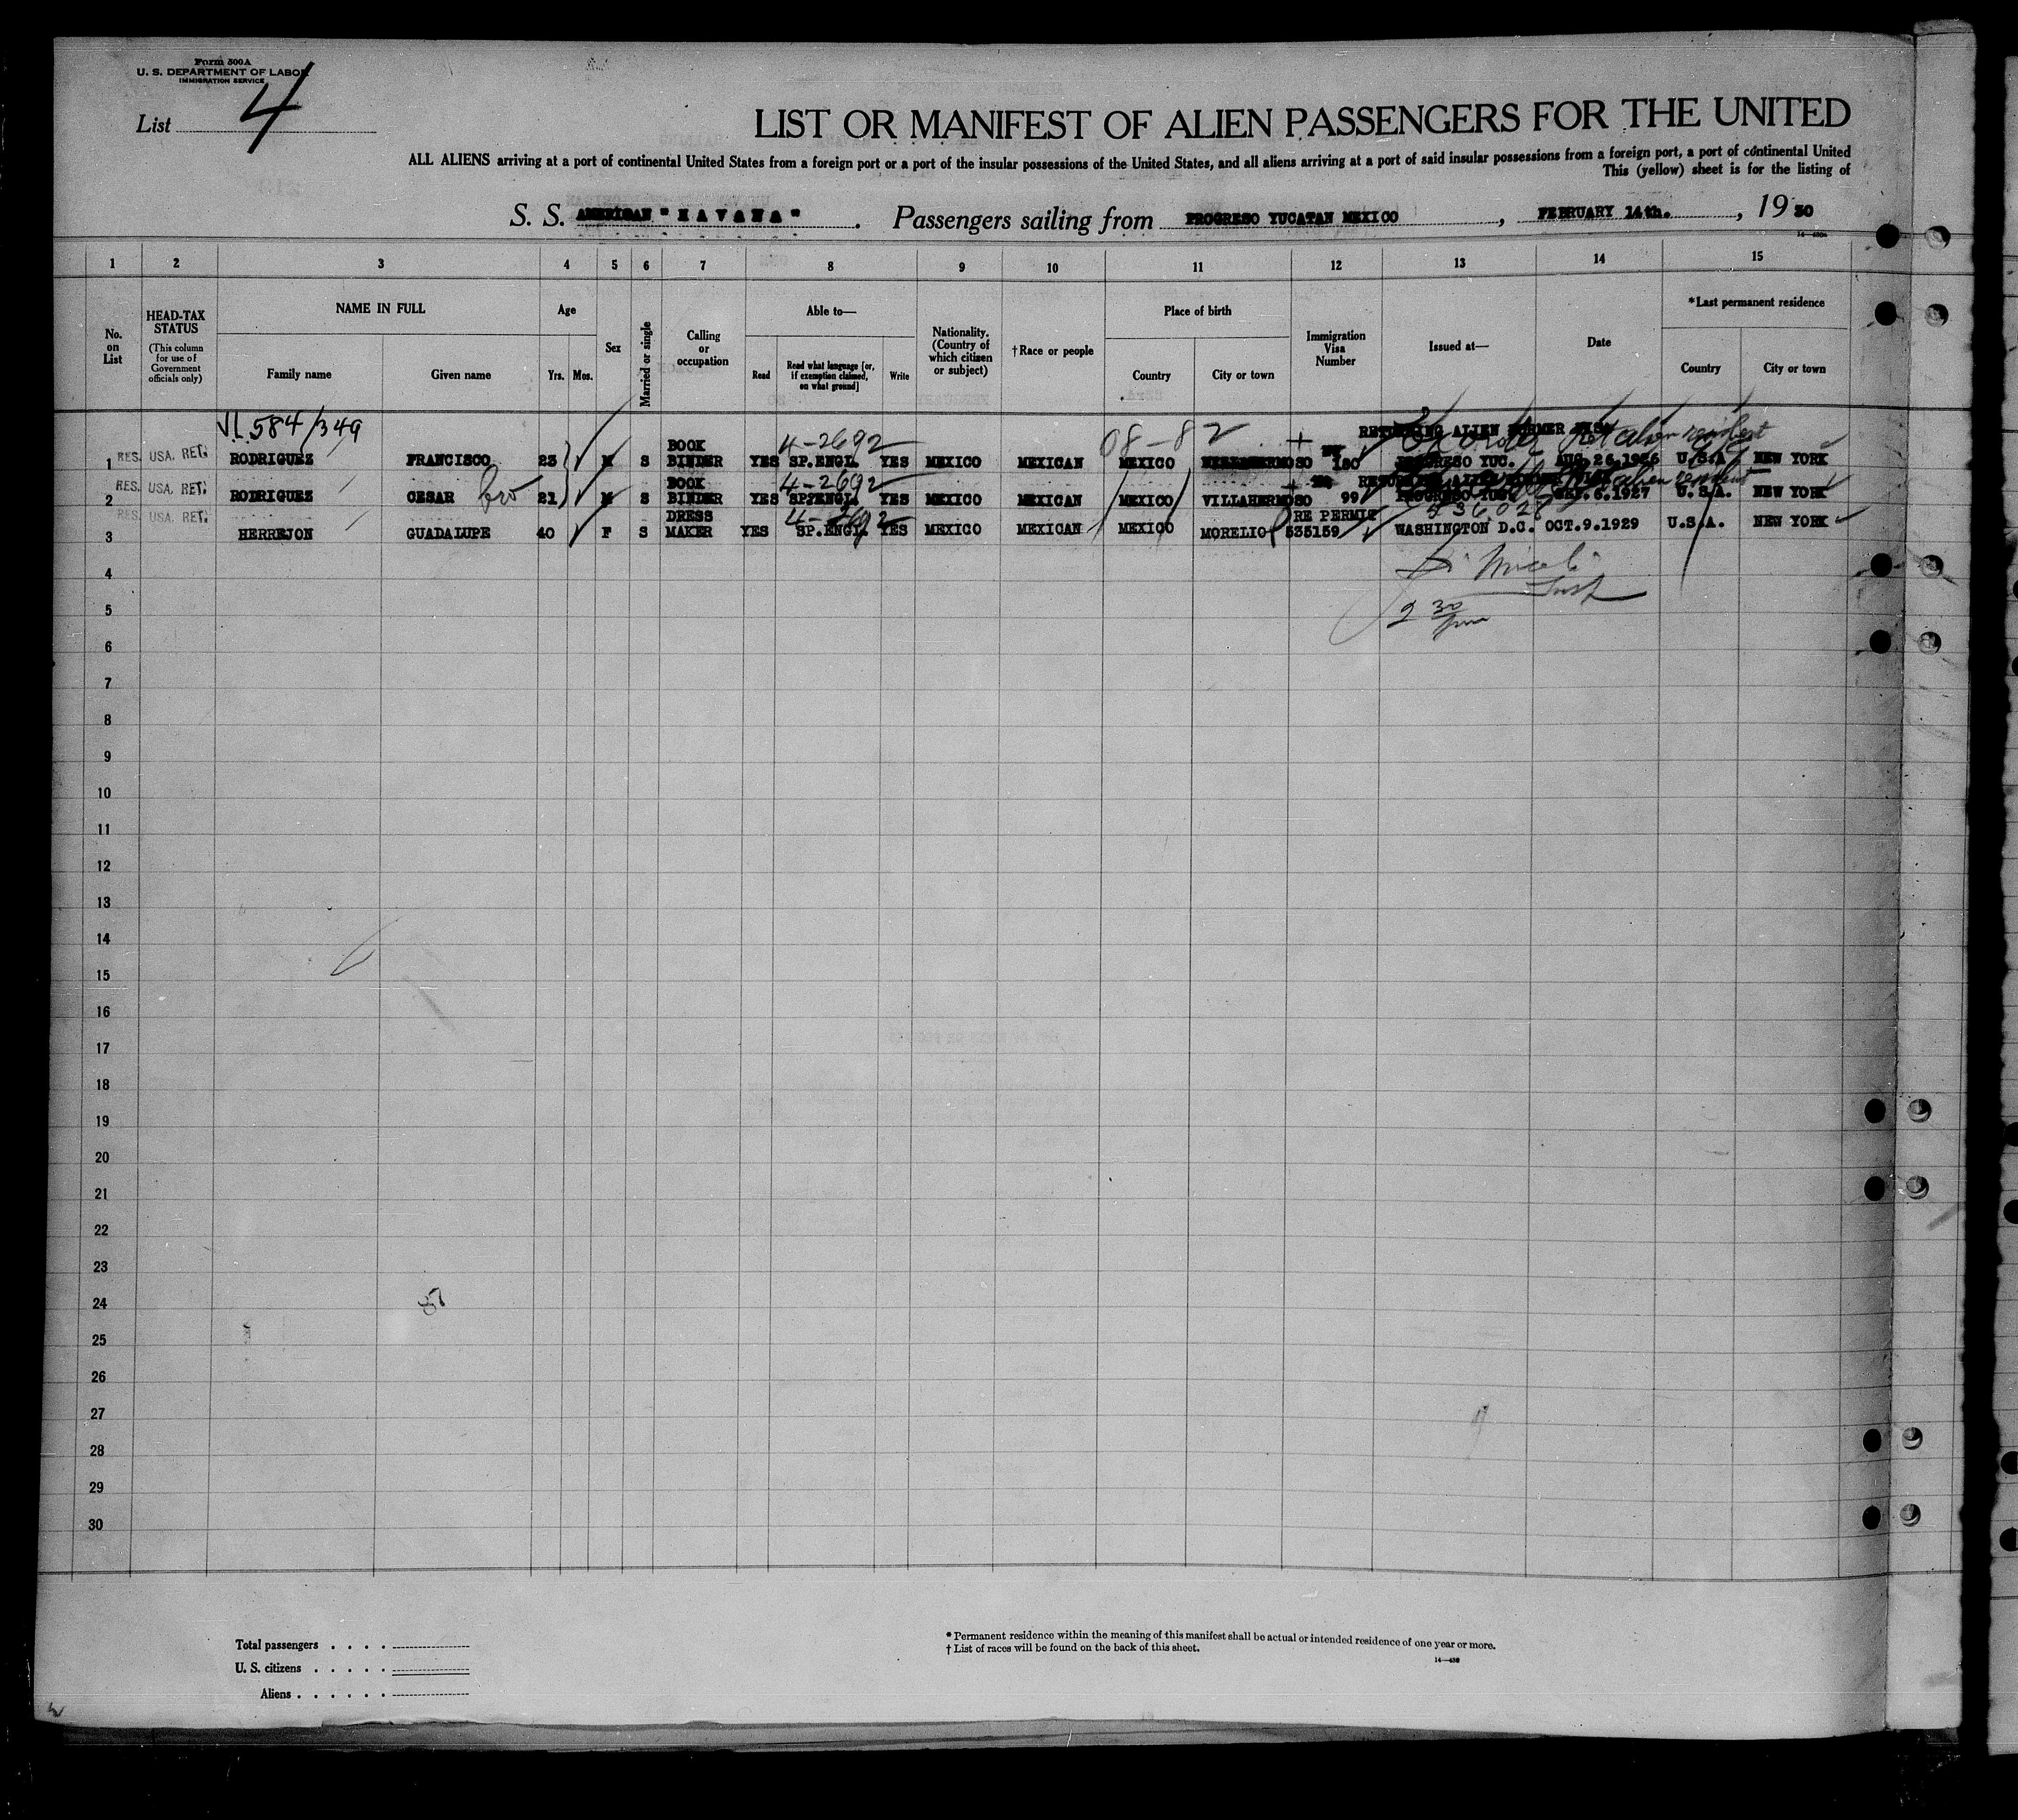 Form 500A
U. S. DEPARTMENT OF LABOR
IMMIGRATION SERVICE
List 4
LIST OR MANIFEST OF ALIEN PASSENGERS FOR THE UNITED
ALL ALIENS arriving at a port of continental United States from a foreign port or a port of the insular possessions of the United States, and all aliens arriving at a port of said insular possessions from a foreign port, a port of continental United
This (yellow) sheet is for the listing of
S. S. AMERICAN "HAVANA". Passengers sailing from PROGRESO YUCATAN MEXICO, FEBRUARY 14th., 1930
1 2 3 4 5 6 7 8 9 10 11 12 13 14 15
No. on List
HEAD-TAX STATUS
(This column for use of Government officials only)
NAME IN FULL
Family name
Given name
Age
Yrs. Mos.
Sex
Married or single
Calling or occupation
Able to—
Read
Read what language [or, if exemption claimed, on what ground]
Write
Nationality. (Country of which citizen or subject)
†Race or people
Place of birth
Country
City or town
Immigration Visa Number
Issued at—
Date
*Last permanent residence
Country
City or town
584/349
4-2692
08-82
RETURNING ALIEN FORMER VISA
1 RES. USA. RET. RODRIGUEZ FRANCISCO 23 M S BOOK BINDER YES SP.ENGL. YES MEXICO MEXICAN MEXICO VILLAHERMOSO 180 PROGRESO YUC. AUG.26.1926 U.S.A NEW YORK
4-2692
2 RES. USA. RET. RODRIGUEZ CESAR bro 21 M S BOOK BINDER YES SP?ENGL. YES MEXICO MEXICAN MEXICO VILLAHERMOSO 99 PROGRESO YUC. SEP.6.1927 U.S.A. NEW YORK
4-2692
3 RES. USA. RET. HERREJON GUADALUPE 40 F S DRESS MAKER YES SP.ENGL. YES MEXICO MEXICAN MEXICO MORELIO RE PERMIT 535159 WASHINGTON D.C. OCT.9.1929 U.S.A. NEW YORK
4
5
2 30 pm
6
7
8
9
10
11
12
13
14
15
16
17
18
19
20
21
22
23
24
25
26
27
28
29
30
Total passengers
U. S. citizens
Aliens
* Permanent residence within the meaning of this manifest shall be actual or intended residence of one year or more.
† List of races will be found on the back of this sheet.
14—430